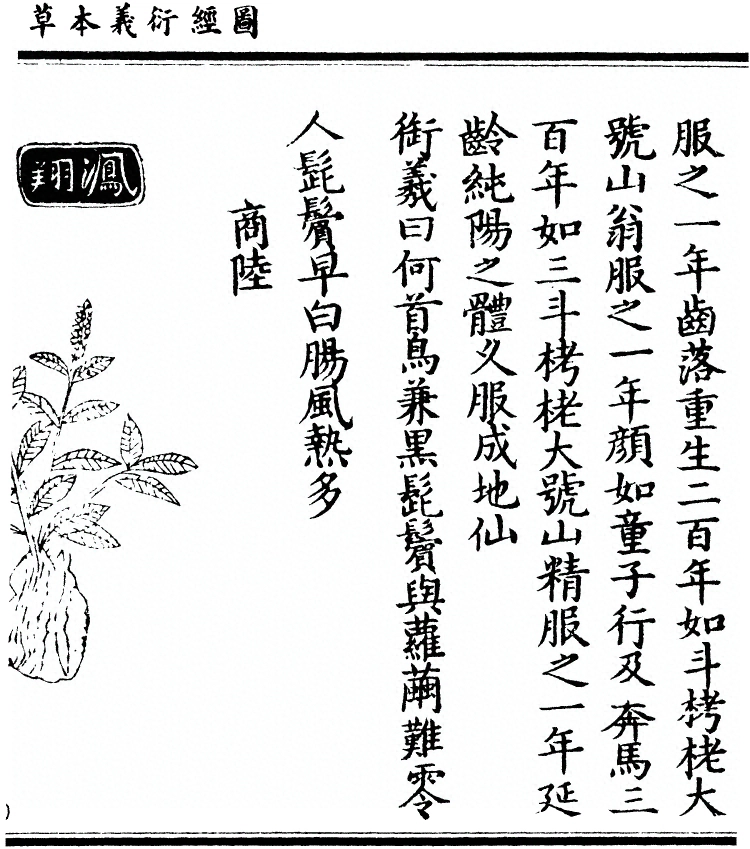 圖經衍義本草
服之一年齒落重生二百年如斗栲栳大
號山翁服之一年顔如童子行及奔馬三
百年如三斗栲栳大號山精服之一年延
齡純陽之體久服成地仙
衍義曰何首烏兼黑髭鬢與蘿難零
人髭鬢早白腸風熱多
商陸
鳳翔